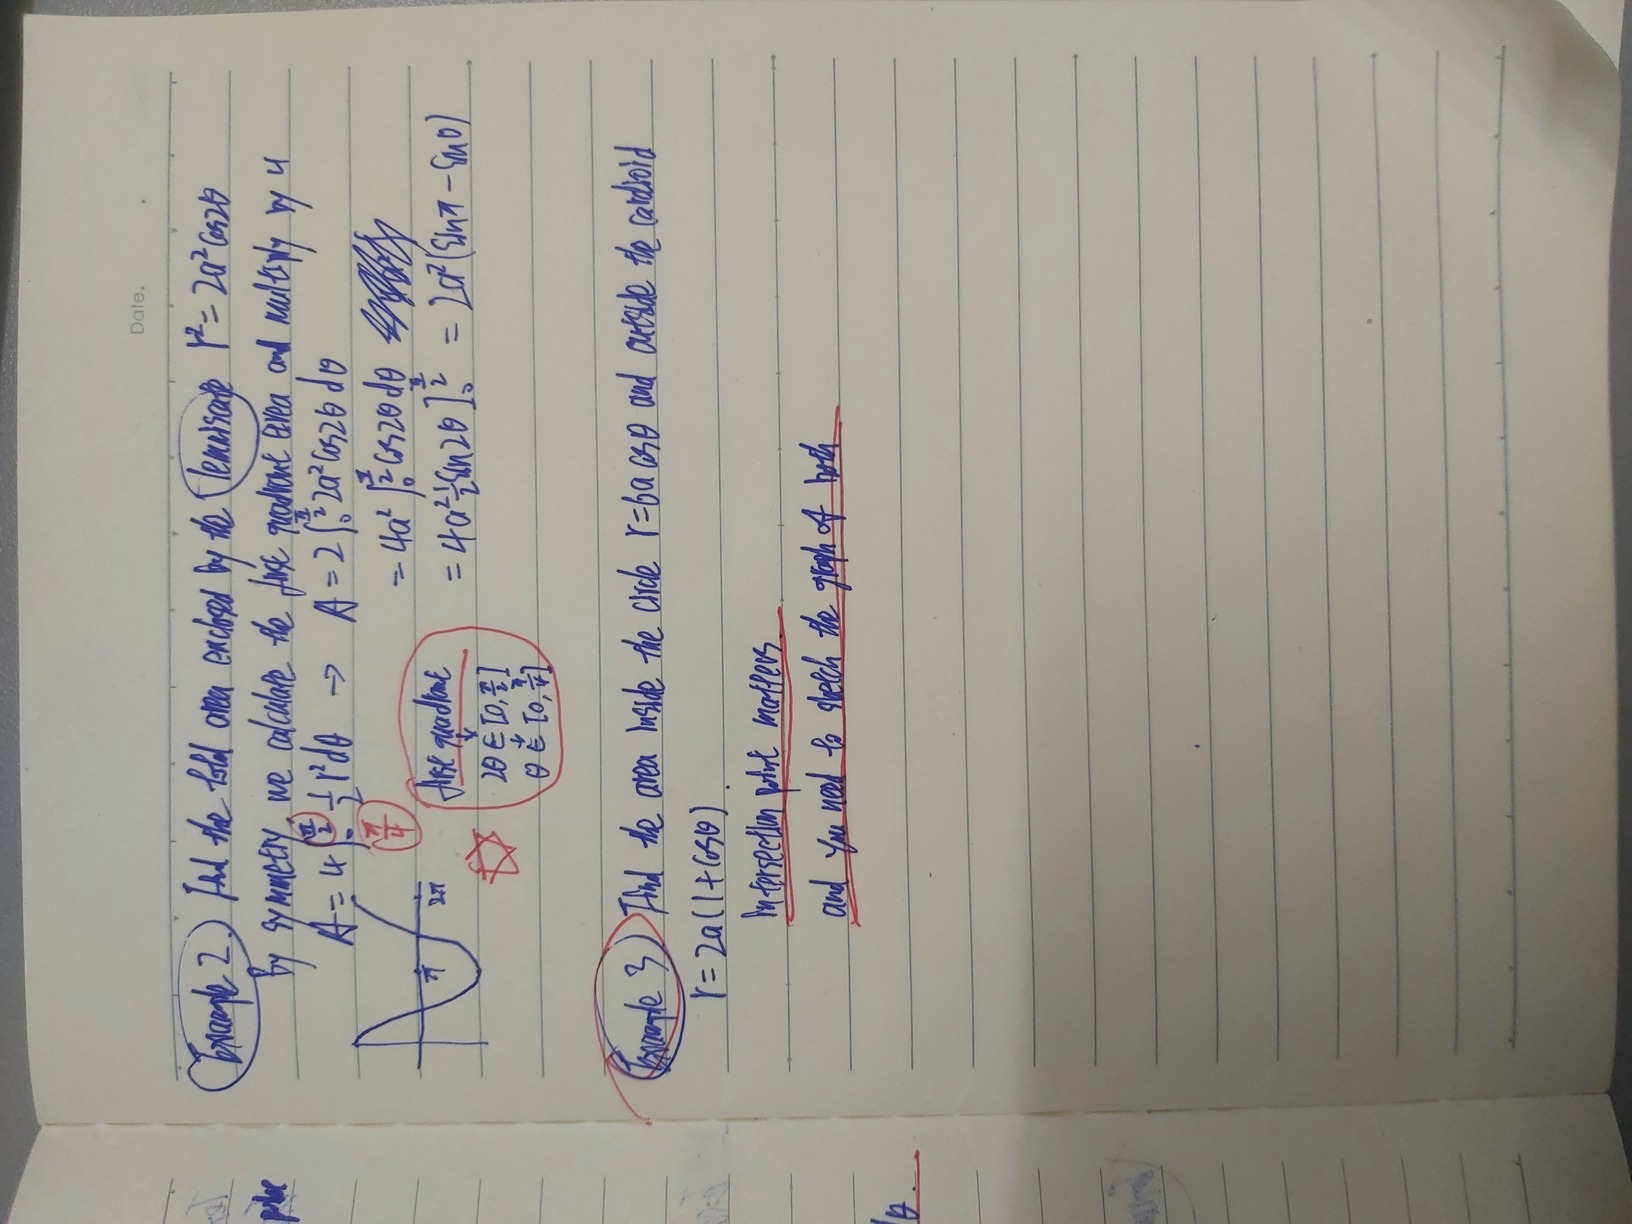 Date.
Example 2. Find the total area enclosed by the lemniscate r² = 2a² cos2θ
By symmetry, we calculate the first quadrant area and multiply by 4
A = 4 ∫₀^(π/2) ½ r² dθ → A = 2 ∫₀^(π/2) 2a² cos2θ dθ
π/4
= 4a² ∫₀^(π/2) cos2θ dθ
= 4a² ½ sin2θ ]₀^(π/2) = 2a² (sinπ − sin0)
π 2π
first quadrant
↓
2θ ∈ [0, π/2]
↓
θ ∈ [0, π/4]
Example 3 Find the area inside the circle r = 6a cosθ and outside the cardioid
r = 2a(1 + cosθ).
Intersection point matters.
and you need to sketch the graph of both
pole
θ.